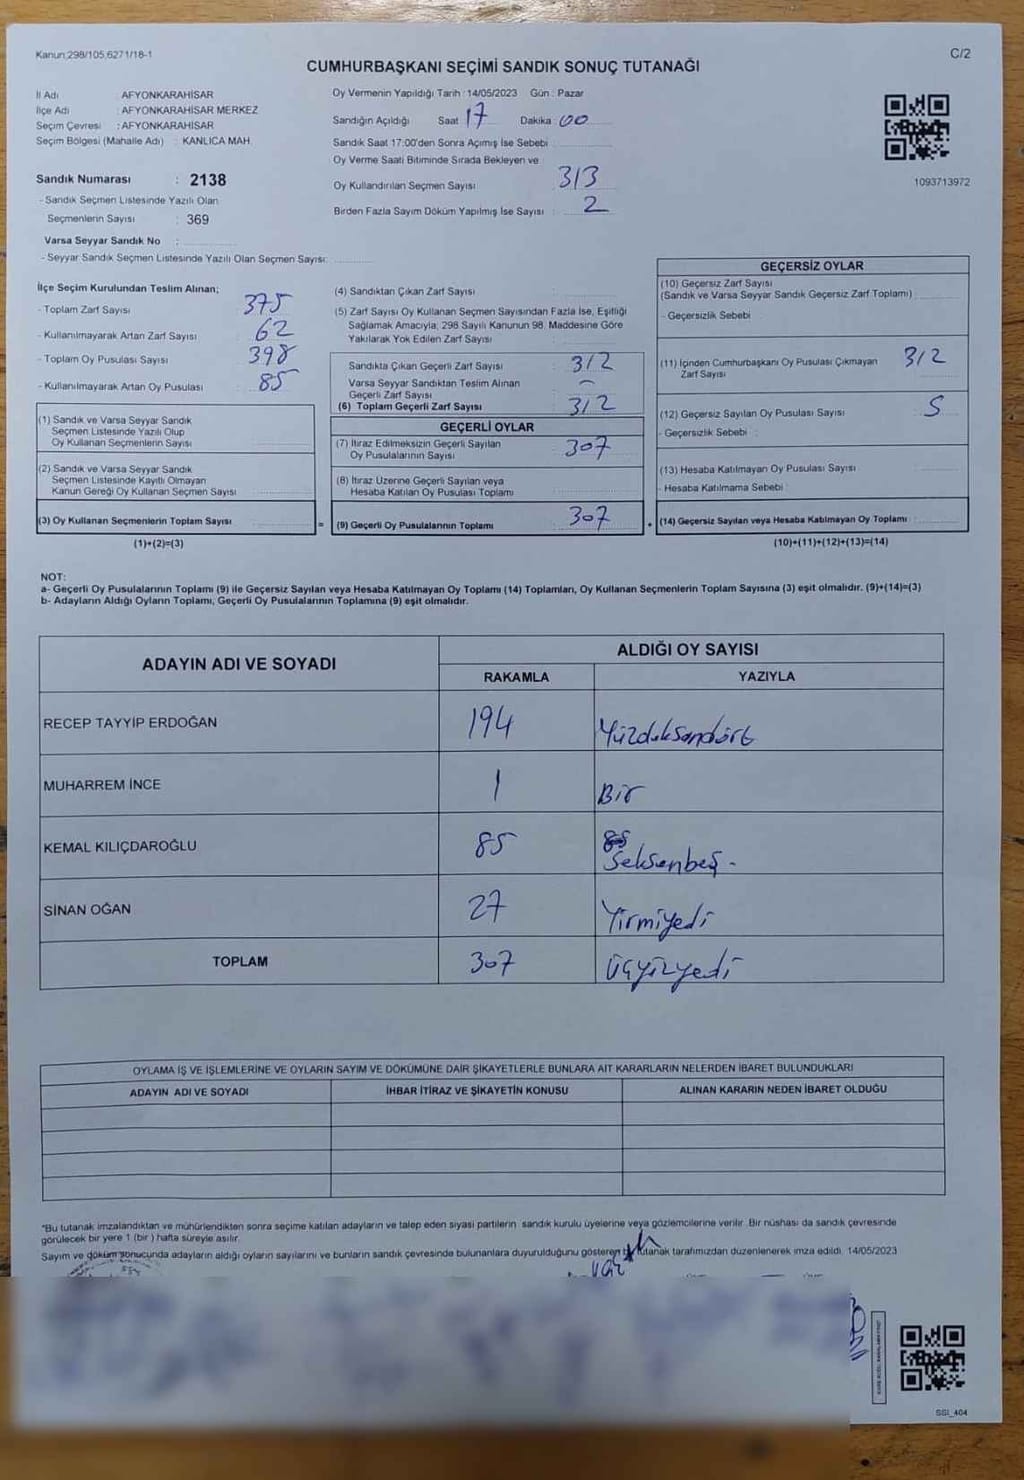 Kanun:298/105,6271/18-1
C/2
CUMHURBAŞKANI SEÇİMİ SANDIK SONUÇ TUTANAĞI
İl Adı : AFYONKARAHİSAR
İlçe Adı : AFYONKARAHİSAR MERKEZ
Seçim Çevresi : AFYONKARAHİSAR
Seçim Bölgesi (Mahalle Adı) : KANLICA MAH.
Sandık Numarası : 2138
- Sandık Seçmen Listesinde Yazılı Olan
Seçmenlerin Sayısı : 369
Varsa Seyyar Sandık No :
- Seyyar Sandık Seçmen Listesinde Yazılı Olan Seçmen Sayısı:
Oy Vermenin Yapıldığı Tarih : 14/05/2023 Gün : Pazar
Sandığın Açıldığı Saat 17 Dakika 00
Sandık Saat 17:00'den Sonra Açımış İse Sebebi :
Oy Verme Saati Bitiminde Sırada Bekleyen ve
Oy Kullandırılan Seçmen Sayısı 313
Birden Fazla Sayım Döküm Yapılmış İse Sayısı : 2
1093713972
İlçe Seçim Kurulundan Teslim Alınan;
- Toplam Zarf Sayısı 375
- Kullanılmayarak Artan Zarf Sayısı 62
- Toplam Oy Pusulası Sayısı 398
- Kullanılmayarak Artan Oy Pusulası 85
(1) Sandık ve Varsa Seyyar Sandık
Seçmen Listesinde Yazılı Olup
Oy Kullanan Seçmenlerin Sayısı
(2) Sandık ve Varsa Seyyar Sandık
Seçmen Listesinde Kayıtlı Olmayan
Kanun Gereği Oy Kullanan Seçmen Sayısı
(3) Oy Kullanan Seçmenlerin Toplam Sayısı
(1)+(2)=(3)
(4) Sandıktan Çıkan Zarf Sayısı
(5) Zarf Sayısı Oy Kullanan Seçmen Sayısından Fazla İse, Eşitliği
Sağlamak Amacıyla; 298 Sayılı Kanunun 98. Maddesine Göre
Yakılarak Yok Edilen Zarf Sayısı
Sandıkta Çıkan Geçerli Zarf Sayısı 312
Varsa Seyyar Sandıktan Teslim Alınan
Geçerli Zarf Sayısı -
(6) Toplam Geçerli Zarf Sayısı 312
GEÇERLİ OYLAR
(7) İtiraz Edilmeksizin Geçerli Sayılan
Oy Pusulalarının Sayısı 307
(8) İtiraz Üzerine Geçerli Sayılan veya
Hesaba Katılan Oy Pusulası Toplamı
= (9) Geçerli Oy Pusulalarının Toplamı 307 +
GEÇERSİZ OYLAR
(10) Geçersiz Zarf Sayısı
(Sandık ve Varsa Seyyar Sandık Geçersiz Zarf Toplamı) :
- Geçersizlik Sebebi
(11) İçinden Cumhurbaşkanı Oy Pusulası Çıkmayan
Zarf Sayısı 312
(12) Geçersiz Sayılan Oy Pusulası Sayısı 5
- Geçersizlik Sebebi :
(13) Hesaba Katılmayan Oy Pusulası Sayısı
- Hesaba Katılmama Sebebi
(14) Geçersiz Sayılan veya Hesaba Katılmayan Oy Toplamı
(10)+(11)+(12)+(13)=(14)
NOT:
a- Geçerli Oy Pusulalarının Toplamı (9) ile Geçersiz Sayılan veya Hesaba Katılmayan Oy Toplamı (14) Toplamları, Oy Kullanan Seçmenlerin Toplam Sayısına (3) eşit olmalıdır. (9)+(14)=(3)
b- Adayların Aldığı Oyların Toplamı, Geçerli Oy Pusulalarının Toplamına (9) eşit olmalıdır.
ADAYIN ADI VE SOYADI
ALDIĞI OY SAYISI
RAKAMLA YAZIYLA
RECEP TAYYİP ERDOĞAN 194 Yüzdoksandört
MUHARREM İNCE 1 Bir
KEMAL KILIÇDAROĞLU 85 Seksenbeş -
SİNAN OĞAN 27 Yirmiyedi
TOPLAM 307 Üçyüzyedi
OYLAMA İŞ VE İŞLEMLERİNE VE OYLARIN SAYIM VE DÖKÜMÜNE DAİR ŞİKAYETLERLE BUNLARA AİT KARARLARIN NELERDEN İBARET BULUNDUKLARI
ADAYIN ADI VE SOYADI İHBAR İTİRAZ VE ŞİKAYETİN KONUSU ALINAN KARARIN NEDEN İBARET OLDUĞU
*Bu tutanak imzalandıktan ve mühürlendikten sonra seçime katılan adayların ve talep eden siyasi partilerin sandık kurulu üyelerine veya gözlemcilerine verilir. Bir nüshası da sandık çevresinde
görülecek bir yere 1 (bir) hafta süreyle asılır.
Sayım ve döküm sonucunda adayların aldığı oyların sayılarını ve bunların sandık çevresinde bulunanlara duyurulduğunu gösteren tutanak tarafımızdan düzenlenerek imza edildi. 14/05/2023
SSI_404